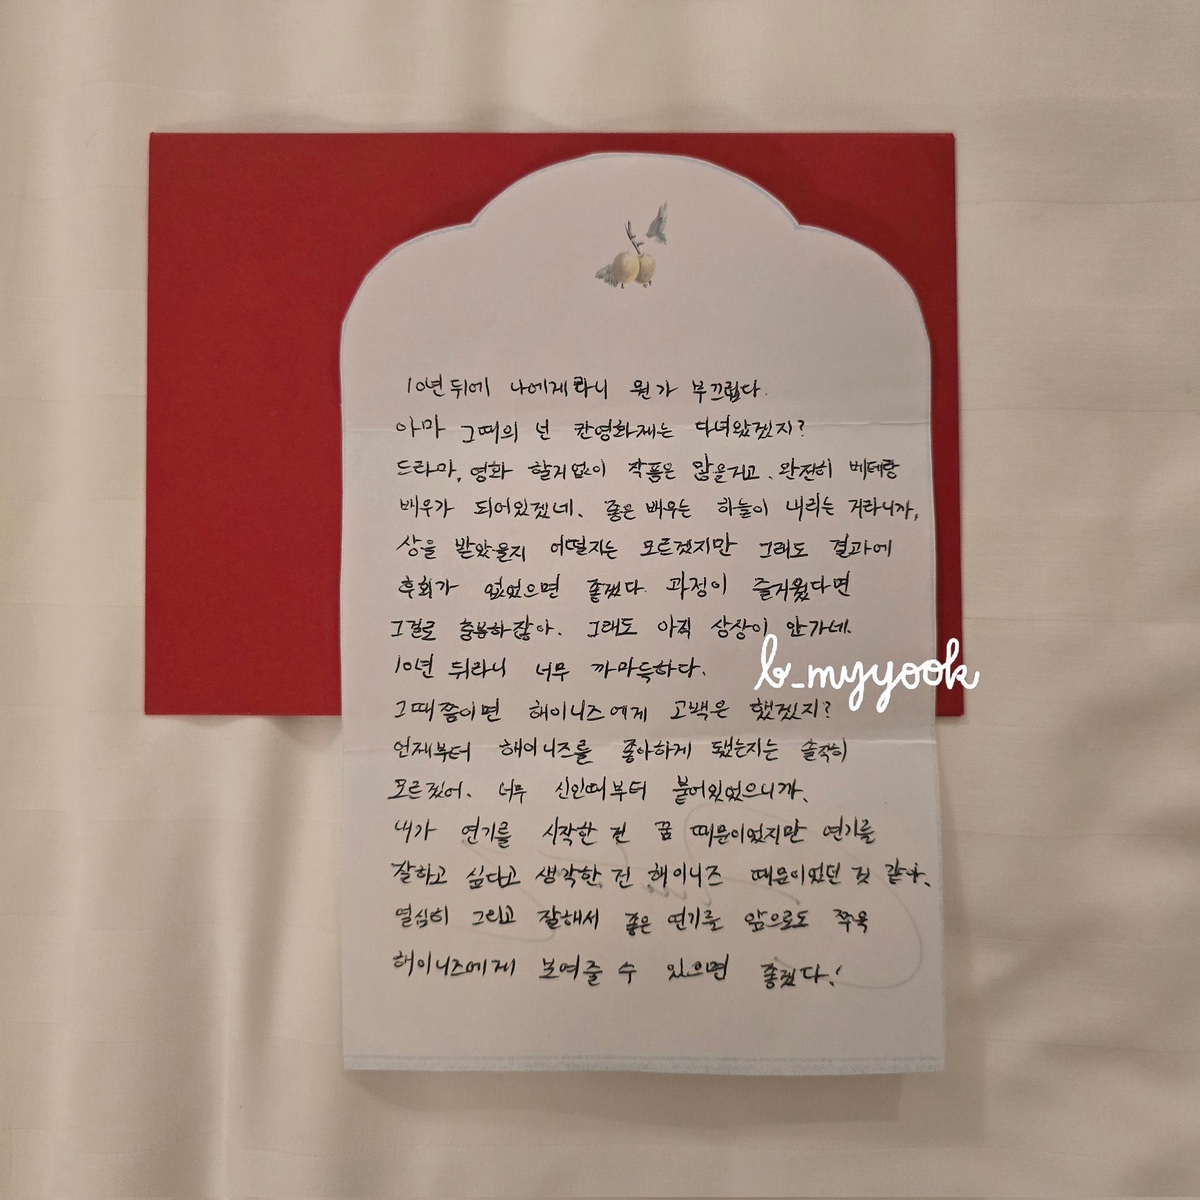 10년 뒤에 나에게라니 뭔가 부끄럽다.
아마 그때의 넌 칸영화제는 다녀왔겠지?
드라마, 영화 할거없이 작품은 많을거고. 완전히 베테랑
배우가 되어있겠네. 좋은 배우는 하늘이 내리는 거라니까,
상을 받았을지 어떨지는 모르겠지만 그래도 결과에
후회가 없었으면 좋겠다. 과정이 즐거웠다면
그걸로 충분하잖아. 그래도 아직 상상이 안가네.
10년 뒤라니 너무 까마득하다.
b_myyook
그때쯤이면 해이니즈에게 고백은 했겠지?
언제부터 해이니즈를 좋아하게 됐는지는 솔직히
모르겠어. 너무 신인때부터 붙어있었으니까.
내가 연기를 시작한 건 꿈 때문이었지만 연기를
잘하고 싶다고 생각한 건 해이니즈 때문이었던 것 같아.
열심히 그리고 잘해서 좋은 연기를 앞으로도 쭈욱
해이니즈에게 보여줄 수 있으면 좋겠다!